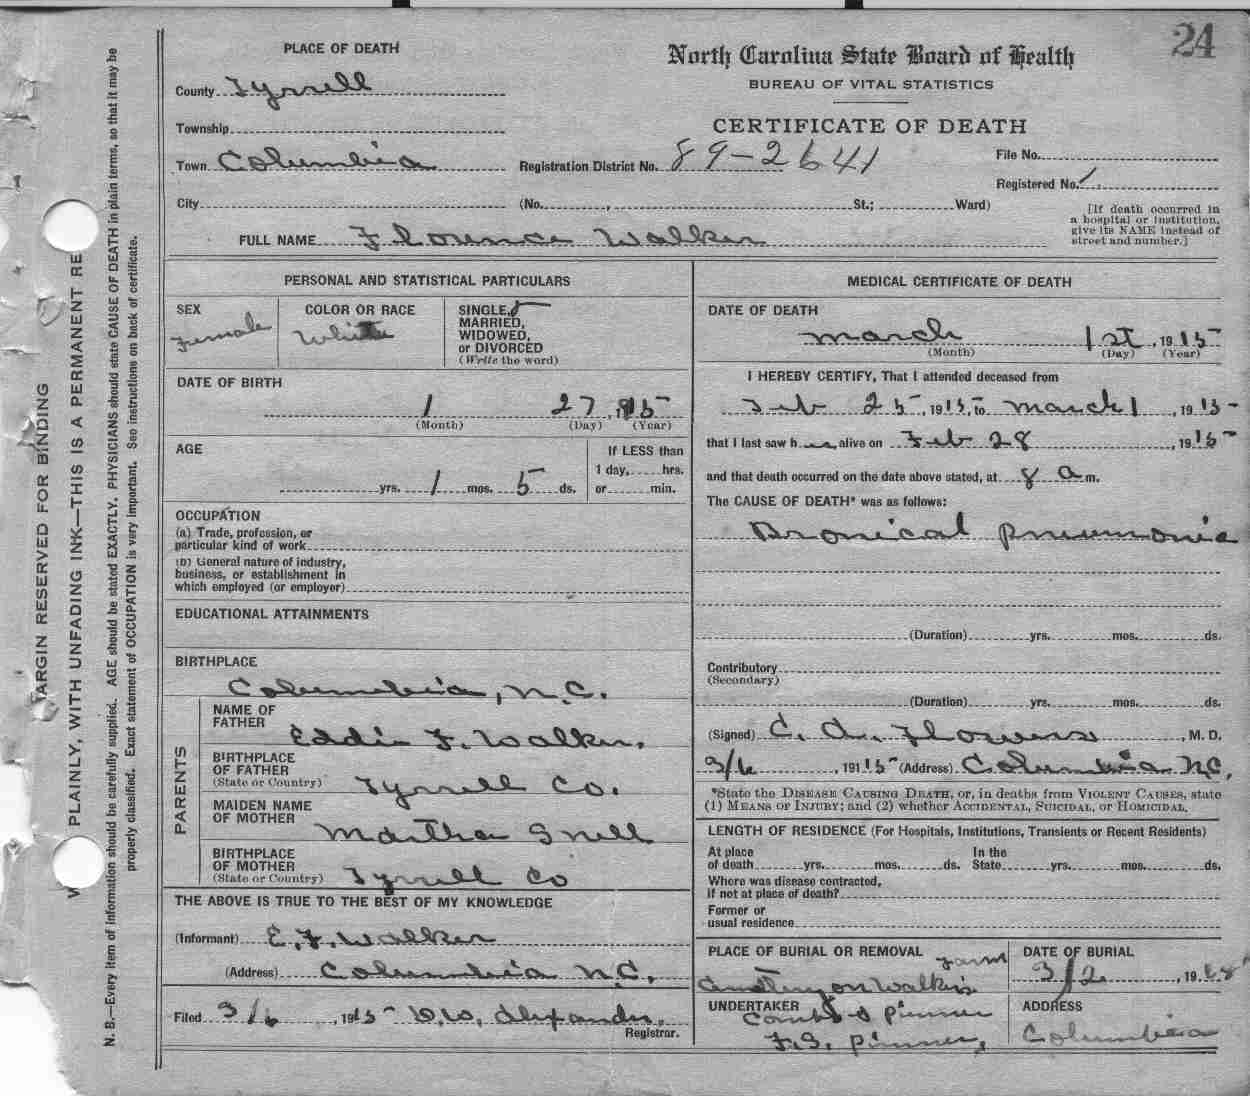 24
PLACE OF DEATH
North Carolina State Board of Health
BUREAU OF VITAL STATISTICS
County Tyrrell
Township
CERTIFICATE OF DEATH
Town Columbia Registration District No. 89-2641 File No.
Registered No. 1
City (No. , St.; Ward)
[If death occurred in
a hospital or institution,
give its NAME instead of
street and number.]
FULL NAME Florence Walker
PERSONAL AND STATISTICAL PARTICULARS
SEX
Female
COLOR OR RACE
White
SINGLE, S
MARRIED,
WIDOWED,
or DIVORCED
(Write the word)
DATE OF BIRTH
1 27, 1915
(Month) (Day) (Year)
AGE
yrs. 1 mos. 5 ds.
If LESS than
1 day, hrs.
or min.
OCCUPATION
(a) Trade, profession, or
particular kind of work
(b) General nature of industry,
business, or establishment in
which employed (or employer)
EDUCATIONAL ATTAINMENTS
BIRTHPLACE
Columbia, N.C.
PARENTS
NAME OF
FATHER Eddie F. Walker.
BIRTHPLACE
OF FATHER
(State or Country) Tyrrell Co.
MAIDEN NAME
OF MOTHER Martha Snell
BIRTHPLACE
OF MOTHER
(State or Country) Tyrrell Co
THE ABOVE IS TRUE TO THE BEST OF MY KNOWLEDGE
(Informant) E.F. Walker
(Address) Columbia N.C.
Filed 3/6, 1915 Alexander,
Registrar.
MEDICAL CERTIFICATE OF DEATH
DATE OF DEATH
March 1st, 1915
(Month) (Day) (Year)
I HEREBY CERTIFY, That I attended deceased from
Feb 25, 1915, to March 1, 1915
that I last saw her alive on Feb 28, 1915
and that death occurred on the date above stated, at 8 a m.
The CAUSE OF DEATH* was as follows:
Bronical Pneumonia
(Duration) yrs. mos. ds.
Contributory
(Secondary)
(Duration) yrs. mos. ds.
(Signed) C. A. Flowers, M. D.
3/6, 1915 (Address) Columbia N.C.
*State the DISEASE CAUSING DEATH, or, in deaths from VIOLENT CAUSES, state
(1) MEANS OF INJURY; and (2) whether ACCIDENTAL, SUICIDAL, or HOMICIDAL.
LENGTH OF RESIDENCE (For Hospitals, Institutions, Transients or Recent Residents)
At place
of death yrs. mos. ds. In the
State yrs. mos. ds.
Where was disease contracted,
if not at place of death?
Former or
usual residence
PLACE OF BURIAL OR REMOVAL
farm
on Walkers
DATE OF BURIAL
3/2, 19
UNDERTAKER
& Pinner
F.S. Pinner,
ADDRESS
Columbia
ARGIN RESERVED FOR BINDING
PLAINLY, WITH UNFADING INK—THIS IS A PERMANENT RE
N. B.—Every item of information should be carefully supplied. AGE should be stated EXACTLY. PHYSICIANS should state CAUSE OF DEATH in plain terms, so that it may be
properly classified. Exact statement of OCCUPATION is very important. See instructions on back of certificate.